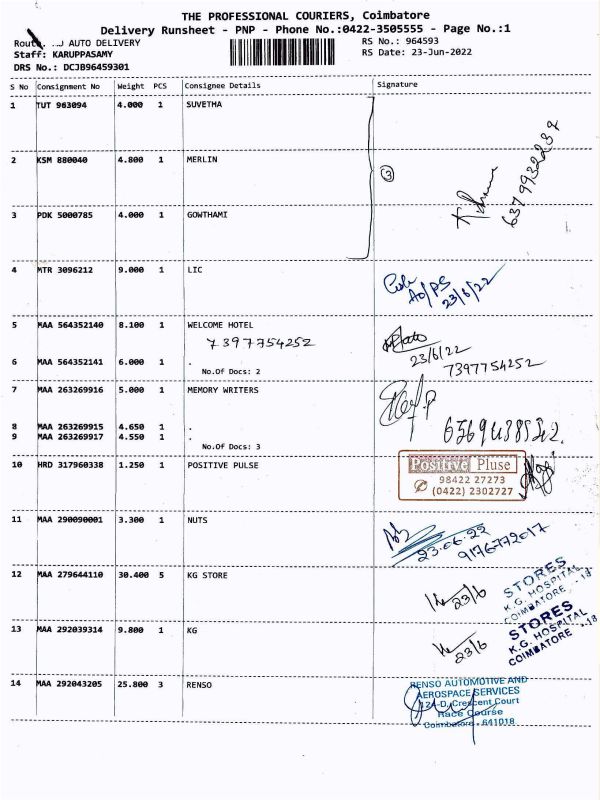 THE PROFESSIONAL COURIERS, Coimbatore
Delivery Runsheet - PNP - Phone No.:0422-3505555 - Page No.:1
AUTO DELIVERY RS No.: 964593
Staff: KARUPPASAMY RS Date: 23-Jun-2022
DRS No.: DCJB96459301
S No Consignment No Weight PCS Consignee Details Signature
1 TUT 963094 4.000 1 SUVETHA
2 KSM 880040 4.800 1 MERLIN
3
6379932237
3 PDK 5000785 4.000 1 GOWTHAMI
4 MTR 3096212 9.000 1 LIC
23/6/22
5 MAA 564352140 8.100 1 WELCOME HOTEL
7397754252
23/6/22
6 MAA 564352141 6.000 1 .
7397754252
No.Of Docs: 2
7 MAA 263269916 5.000 1 MEMORY WRITERS
8 MAA 263269915 4.650 1 .
9 MAA 263269917 4.550 1 .
No.Of Docs: 3
10 HRD 317960338 1.250 1 POSITIVE PULSE
Positive Pluse
98422 27273
(0422) 2302727
11 MAA 290090001 3.300 1 NUTS
23.06.22
9176772017
12 MAA 279644110 30.400 5 KG STORE
23/6
STORES
K.G. HOSPITAL
COIMBATORE - 18
13 MAA 292039314 9.800 1 KG
23/6
STORES
K.G. HOSPITAL
COIMBATORE - 18
14 MAA 292043205 25.800 3 RENSO
RENSO AUTOMOTIVE AND
AEROSPACE SERVICES
124-D, Crescent Court
Race Course
Coimbatore - 641018